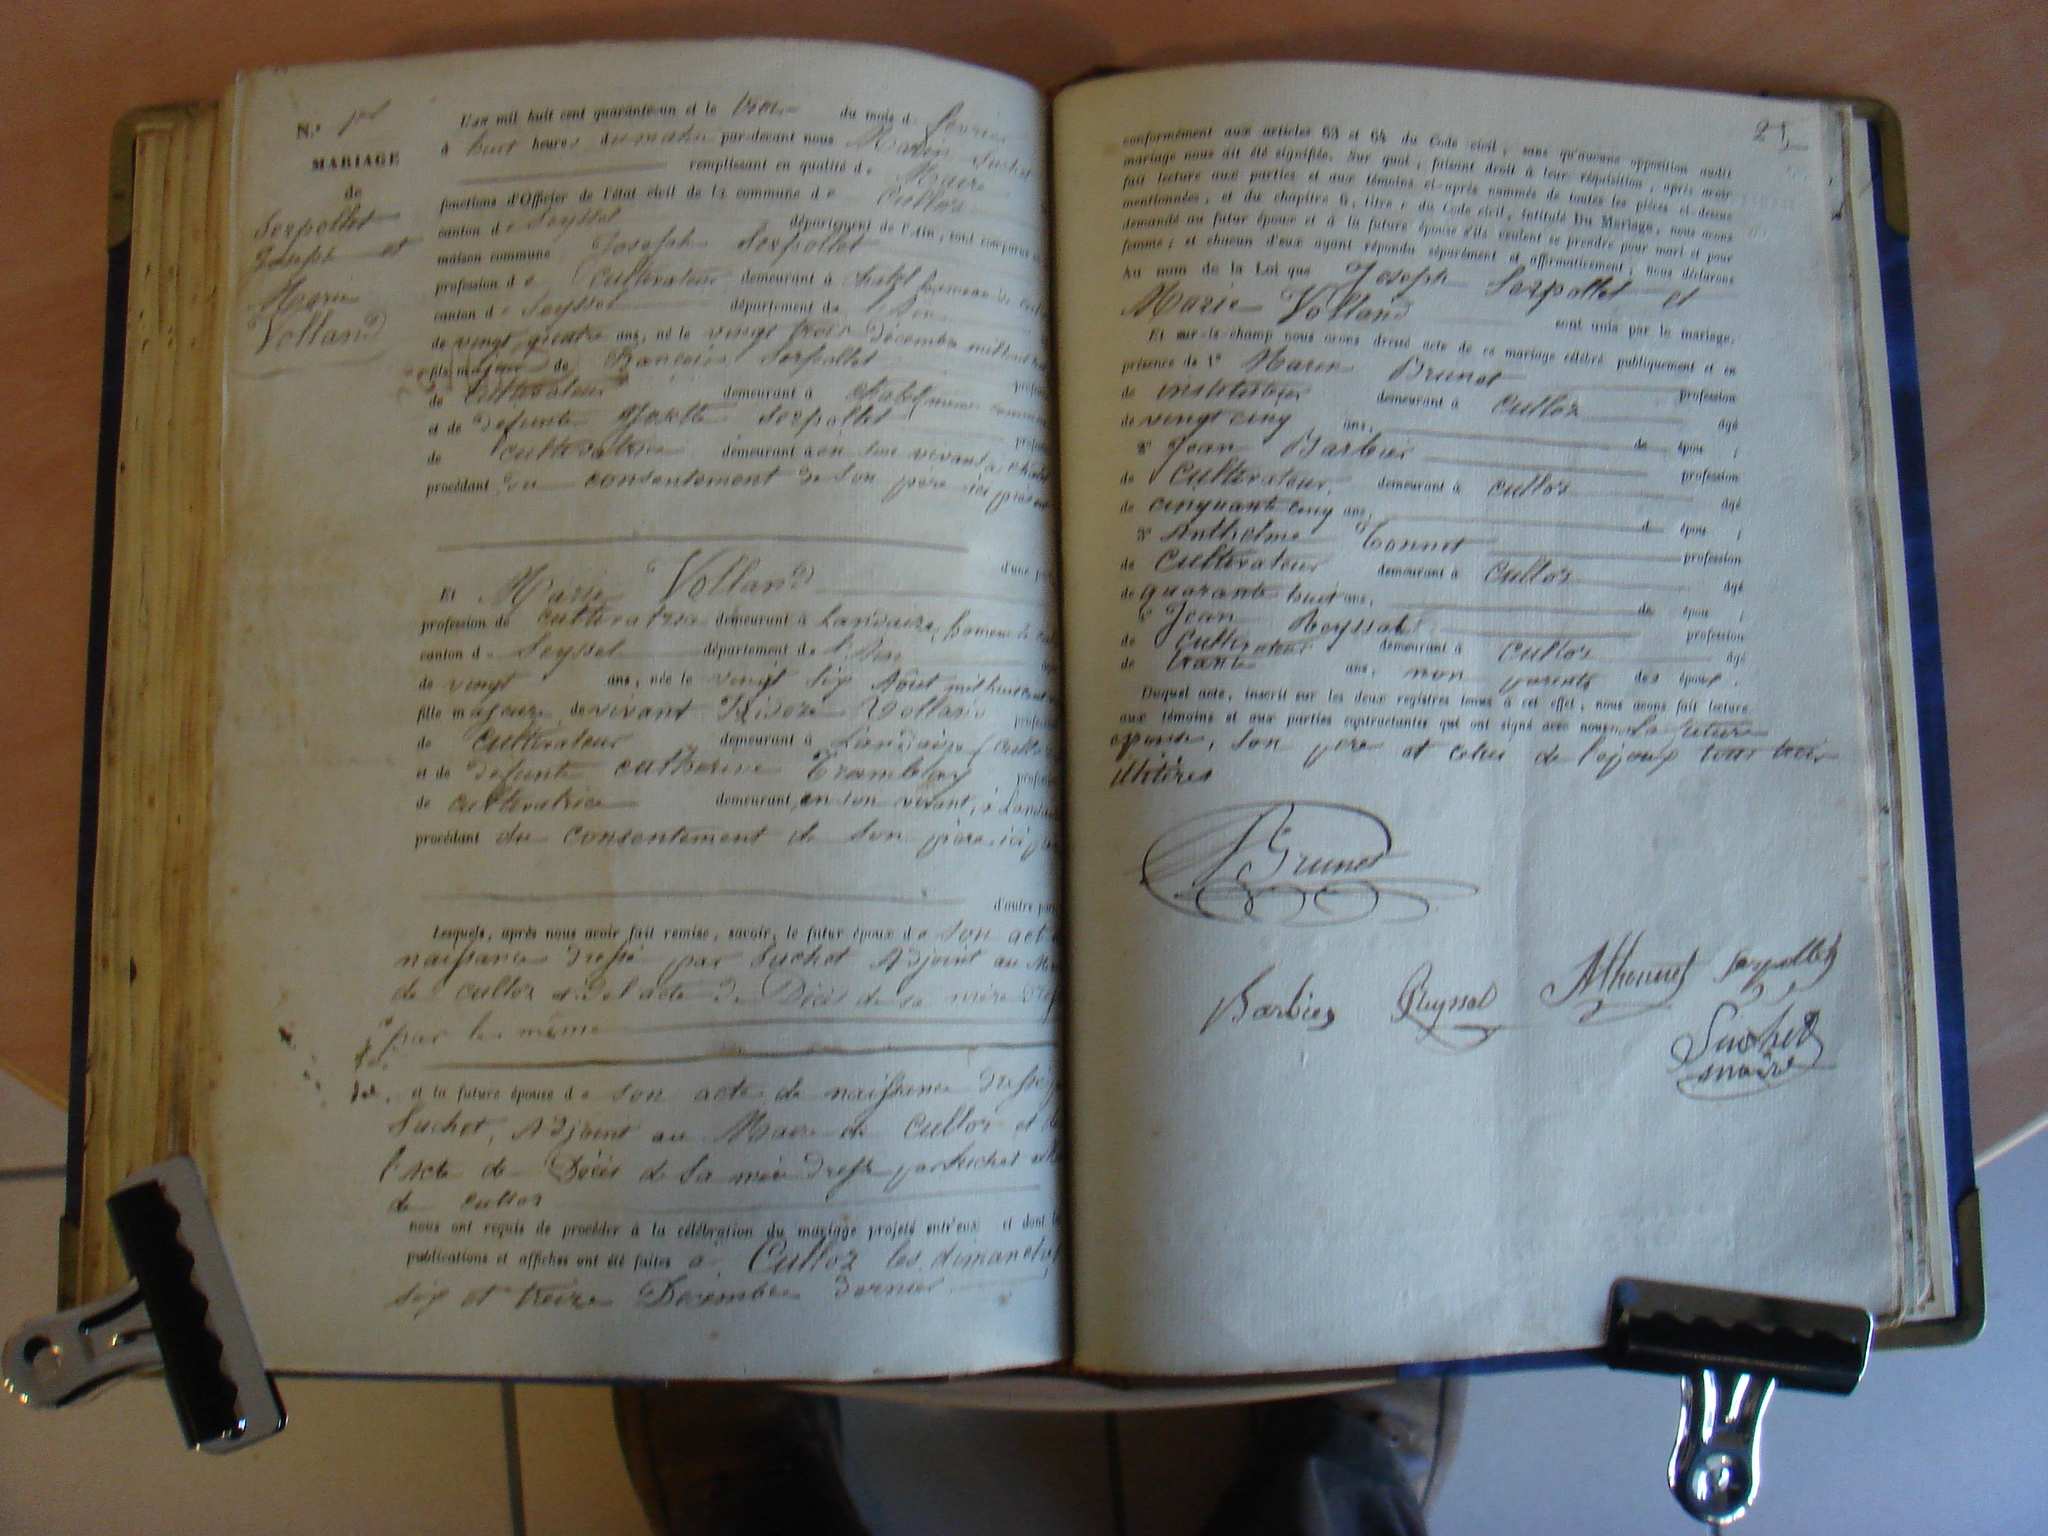 N.º 1er
MARIAGE
de
Serpollet
Joseph et
Marie
Volland
L'an mil huit cent quarante-un et le trois du mois de février
à huit heures du matin par-devant nous Marin Suchet
remplissant en qualité de Maire
fonctions d'Officier de l'état civil de la commune de Culloz
canton de Seyssel département de l'Ain, sont comparus
maison commune Joseph Serpollet
profession de Cultivateur demeurant à Chatel hameau de
canton de Seyssel département de l'Ain
de vingt quatre ans, né le vingt trois Décembre mil huit
fils majeur de François Serpollet
de Cultivateur demeurant à Chatel même commune
et de défunte Josette Serpollet
de cultivatrice demeurant à en son vivant à
procédant du consentement de son père ici présent
d'une
Et Marie Volland
profession de cultivatrice demeurant à Landaize, hameau de
canton de Seyssel département de l'Ain
de vingt ans, née le vingt six Août mil huit cent
fille majeure de vivant Isidore Volland
de Cultivateur demeurant à Landaize
et de défunte catherine Tramblay
de cultivatrice demeurant, en son vivant, à
procédant du consentement de son père ici
d'autre
Lesquels, après nous avoir fait remise, savoir, le futur époux de son acte
naissance dressé par Suchet Adjoint au
de culloz et de l'acte de Décès de sa mère
par le même
et la future épouse de son acte de naissance dressé
Suchet, Adjoint au Maire de Culloz et de
l'acte de Décès de sa mère dressé par Suchet
de culloz
nous ont requis de procéder à la célébration du mariage projeté entr'eux et dont les
publications et affiches ont été faites à Culloz les dimanches
six et treize Décembre dernier
21
conformément aux articles 63 et 64 du Code civil, sans qu'aucune opposition audit
mariage nous ait été signifiée. Sur quoi, faisant droit à leur réquisition, après avoir
fait lecture aux parties et aux témoins ci-après nommés de toutes les pièces ci-dessus
mentionnées, et du chapitre 6, titre 5 du Code civil, intitulé Du Mariage, nous avons
demandé au futur époux et à la future épouse s'ils veulent se prendre pour mari et pour
femme; et chacun d'eux ayant répondu séparément et affirmativement, nous déclarons
Au nom de la Loi que Joseph Serpollet et
Marie Volland sont unis par le mariage.
Et sur-le-champ nous avons dressé acte de ce mariage célébré publiquement et en
présence de 1º Marin Brunet profession
de instituteur demeurant à Culloz âgé
de vingt cinq ans, de époux;
2º Jean Barbier profession
de Cultivateur demeurant à culloz âgé
de cinquante cinq ans, d époux;
3º Anthelme Tonnet profession
de Cultivateur demeurant à Culloz âgé
de quarante huit ans, de époux;
4º Jean Reyssat profession
de Cultivateur demeurant à Culloz âgé
de trente ans, non parents des époux.
Duquel acte, inscrit sur les deux registres tenus à cet effet, nous avons fait lecture
aux témoins et aux parties contractantes qui ont signé avec nous, non la future
épouse, son père et celui de l'époux tous trois
illitérés
Brunet
Barbier Reyssat Serpollet
Suchet
maire